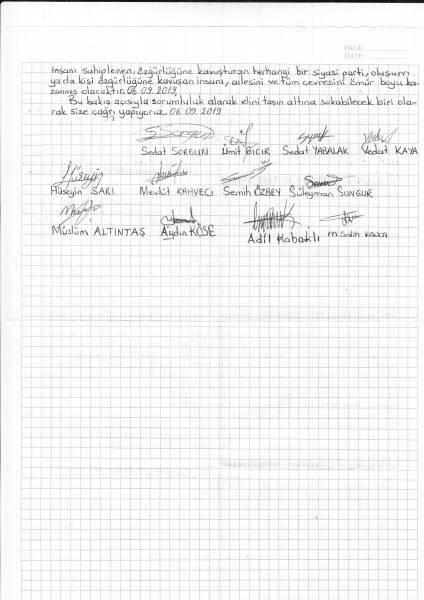 PAGE
DATE
insanı sahiplenen, özgürlüğüne kavuşturan herhangi bir siyasi parti, oluşum
ya da kişi özgürlüğüne kavuşan insanı, ailesini ve tüm çevresini ömür boyu ka-
zanmış olacaktır. 06.09.2019
Bu bakış açısıyla sorumluluk alarak elini taşın altına sokabilecek biri ola-
rak size çağrı yapıyoruz. 06.09.2019
Sedat SORGUN Ümit GICIR Sedat YABALAK Vedat KAYA
Hüseyin SARI Mevlüt KAHVECİ Semih ÖZBEY Süleyman SUNGUR
Müslüm ALTINTAŞ Aydın KÖSE Adil Kabaklı M. Salih KANCA